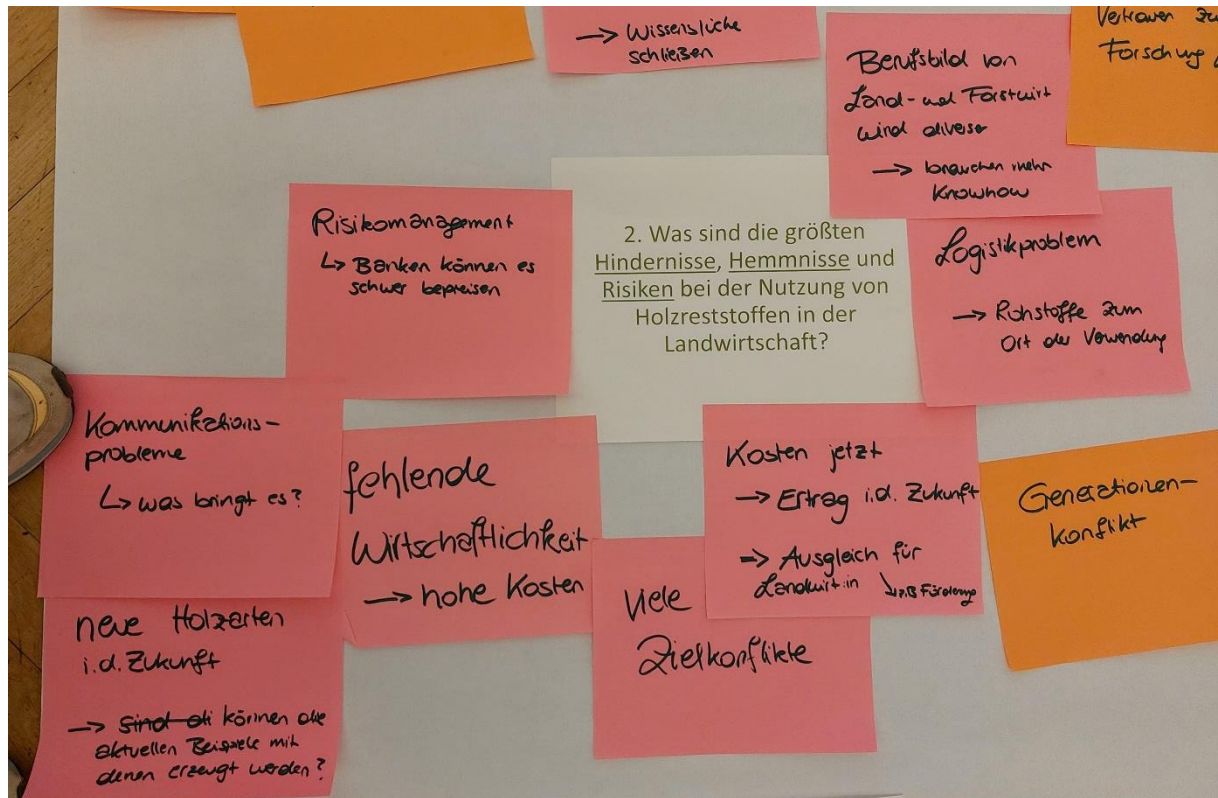 → Wissenslücke
schließen
Berufsbild von
Land- und Forstwirt
wird diverser
→ brauchen mehr
Knowhow
Vertrauen zu
Forschung
Risikomanagement
↳ Banken können es
schwer bepreisen
2. Was sind die größten
Hindernisse, Hemmnisse und
Risiken bei der Nutzung von
Holzreststoffen in der
Landwirtschaft?
Logistikproblem
→ Rohstoffe zum
Ort der Verwendung
Kommunikations-
probleme
↳ was bringt es?
fehlende
Wirtschaftlichkeit
→ hohe Kosten
Kosten jetzt
→ Ertrag i.d. Zukunft
→ Ausgleich für
Landwirt:in ↘ z.B Förderung
Generationen-
konflikt
neue Holzarten
i.d. Zukunft
→ sind di können die
aktuellen Beispiele mit
denen erzeugt werden?
Viele
Zielkonflikte